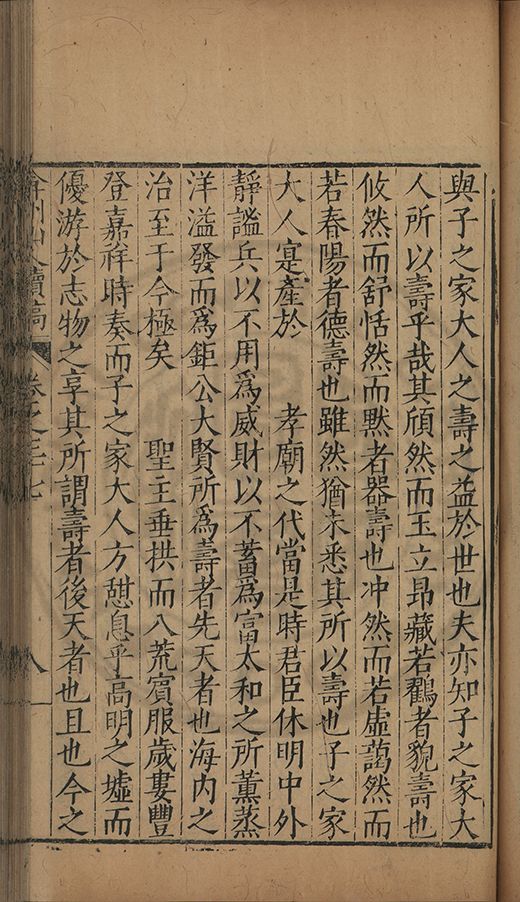 與子之家大人之壽之益於世也夫亦知子之家大
人所以壽乎哉其頎然而玉立昻藏若鸛者貌壽也
攸然而舒恬然而默者器壽也冲然而若虛藹然而
若春陽者德壽也雖然猶未悉其所以壽也子之家
大人寔產於　孝廟之代當是時君臣休明中外
靜謐兵以不用爲威財以不蓄爲富太和之所薰蒸
洋溢發而爲鉅公大賢所爲壽者先天者也海內之
治至于今極矣　聖主垂拱而八荒賓服歲婁豐
登嘉祥時奏而子之家大人方憇息乎高明之墟而
優游於志物之享其所謂壽者後天者也且也今之
弇州山人續稿　卷之三十七　八